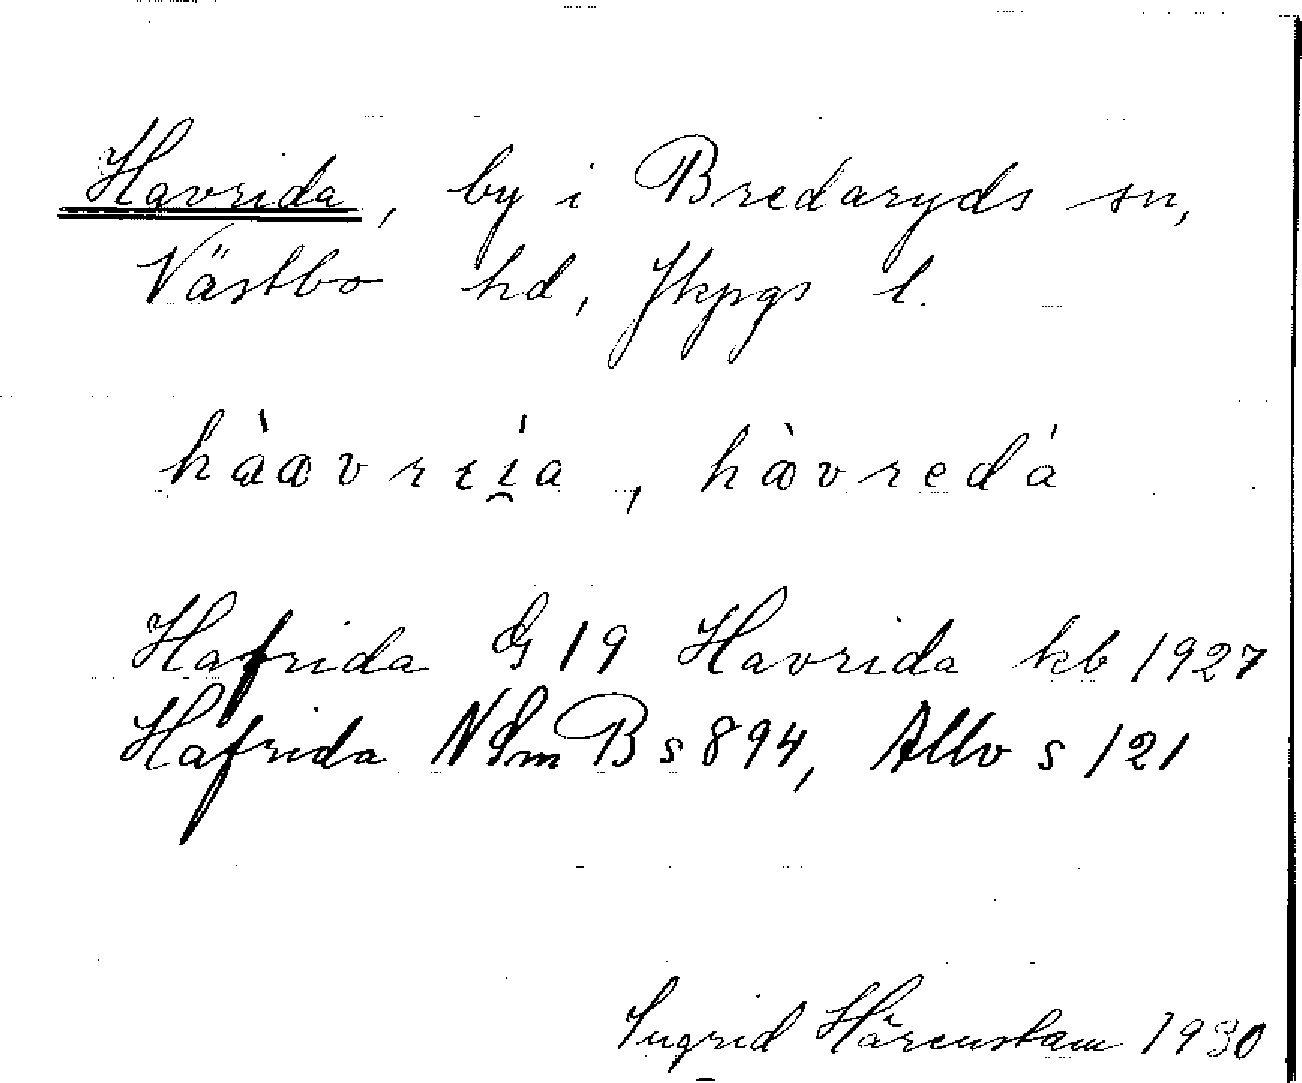 Havrida, by i Bredaryds sn,
Västbo hd, Jkpgs l.
hàɑvrɪɪ́a, hàvredá
Hafrida G 19 Havrida kb 1927
Hafrida NSmB s 894, Allv s 121
Ingrid Härenstam 1930